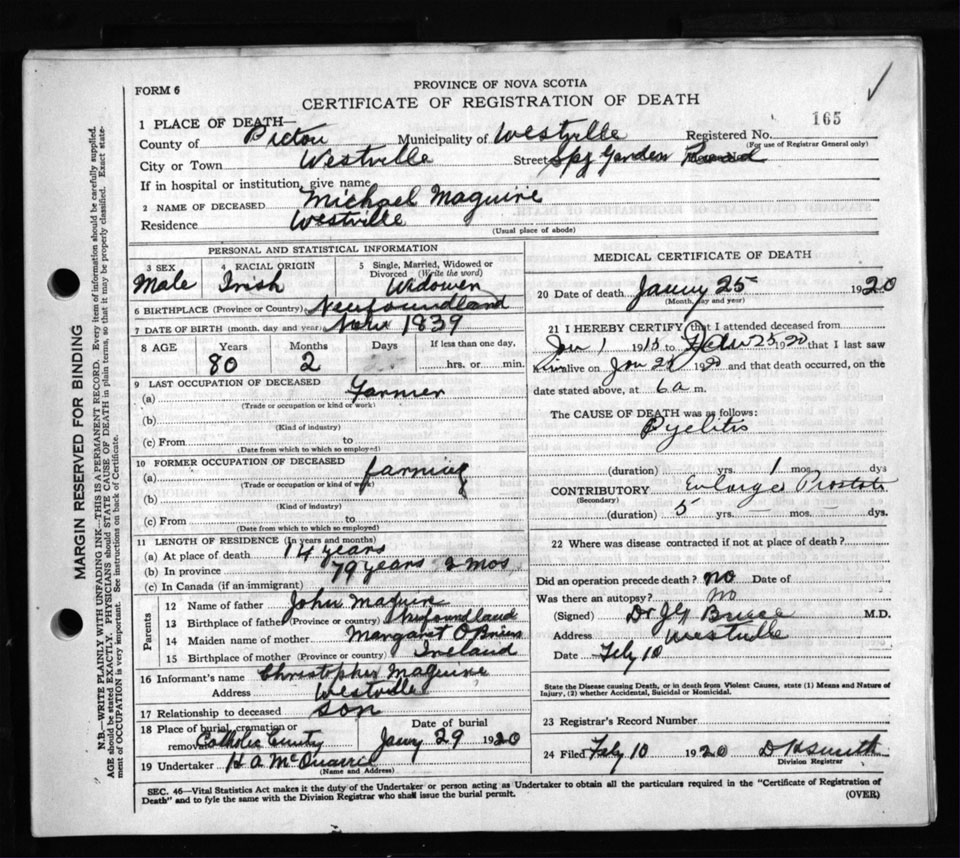 FORM 6
PROVINCE OF NOVA SCOTIA
CERTIFICATE OF REGISTRATION OF DEATH
165
1 PLACE OF DEATH—
County of Pictou Municipality of Westville Registered No.
(For use of Registrar General only)
City or Town Westville Street Spg Garden Road
If in hospital or institution, give name
2 NAME OF DECEASED Michael Maguire
Residence Westville
(Usual place of abode)
PERSONAL AND STATISTICAL INFORMATION
3 SEX 4 RACIAL ORIGIN 5 Single, Married, Widowed or Divorced (Write the word)
Male Irish Widower
6 BIRTHPLACE (Province or Country) Newfoundland
7 DATE OF BIRTH (month, day and year) Nov 1839
8 AGE Years Months Days If less than one day,
80 2 hrs. or min.
9 LAST OCCUPATION OF DECEASED
(a) Farmer
(Trade or occupation or kind of work)
(b)
(Kind of industry)
(c) From to
(Date from which to which so employed)
10 FORMER OCCUPATION OF DECEASED
(a) farming
(Trade or occupation or kind of work)
(b)
(Kind of industry)
(c) From to
(Date from which to which so employed)
11 LENGTH OF RESIDENCE (In years and months)
(a) At place of death 14 years
(b) In province 79 years 2 mos
(c) In Canada (if an immigrant)
Parents
12 Name of father John Maguire
13 Birthplace of father (Province or country) Newfoundland
14 Maiden name of mother Margaret O'Brien
15 Birthplace of mother (Province or country) Ireland
16 Informant's name Christopher Maguire
Address Westville
17 Relationship to deceased son
18 Place of burial, cremation or removal Catholic Date of burial
Janny 29 1920
19 Undertaker H A McQuarrie
(Name and Address)
MEDICAL CERTIFICATE OF DEATH
20 Date of death Janny 25 1920
(Month, day and year)
21 I HEREBY CERTIFY that I attended deceased from
Jan 1 19 to 25 1920 that I last saw
alive on Jan 1920 and that death occurred, on the
date stated above, at 6 a m.
The CAUSE OF DEATH was as follows:
Pyelitis
(duration) yrs. 1 mos. dys
CONTRIBUTORY Enlarged Prostate
(Secondary)
(duration) 5 yrs. — mos. — dys.
22 Where was disease contracted if not at place of death?
Did an operation precede death? no Date of
Was there an autopsy? no
(Signed) Dr J G Bruce M.D.
Address Westville
Date Feby 10
State the Disease causing Death, or in death from Violent Causes, state (1) Means and Nature of
Injury, (2) whether Accidental, Suicidal or Homicidal.
23 Registrar's Record Number
24 Filed Feby 10 1920 D H Smith
Division Registrar
SEC. 46—Vital Statistics Act makes it the duty of the Undertaker or person acting as Undertaker to obtain all the particulars required in the "Certificate of Registration of
Death" and to fyle the same with the Division Registrar who shall issue the burial permit.
(OVER)
MARGIN RESERVED FOR BINDING
N.B.—WRITE PLAINLY WITH UNFADING INK—THIS IS A PERMANENT RECORD. Every item of information should be carefully supplied.
AGE should be stated EXACTLY. PHYSICIANS should STATE CAUSE OF DEATH in plain terms, so that it may be properly classified. Exact state-
ment of OCCUPATION is very important. See instructions on back of Certificate.